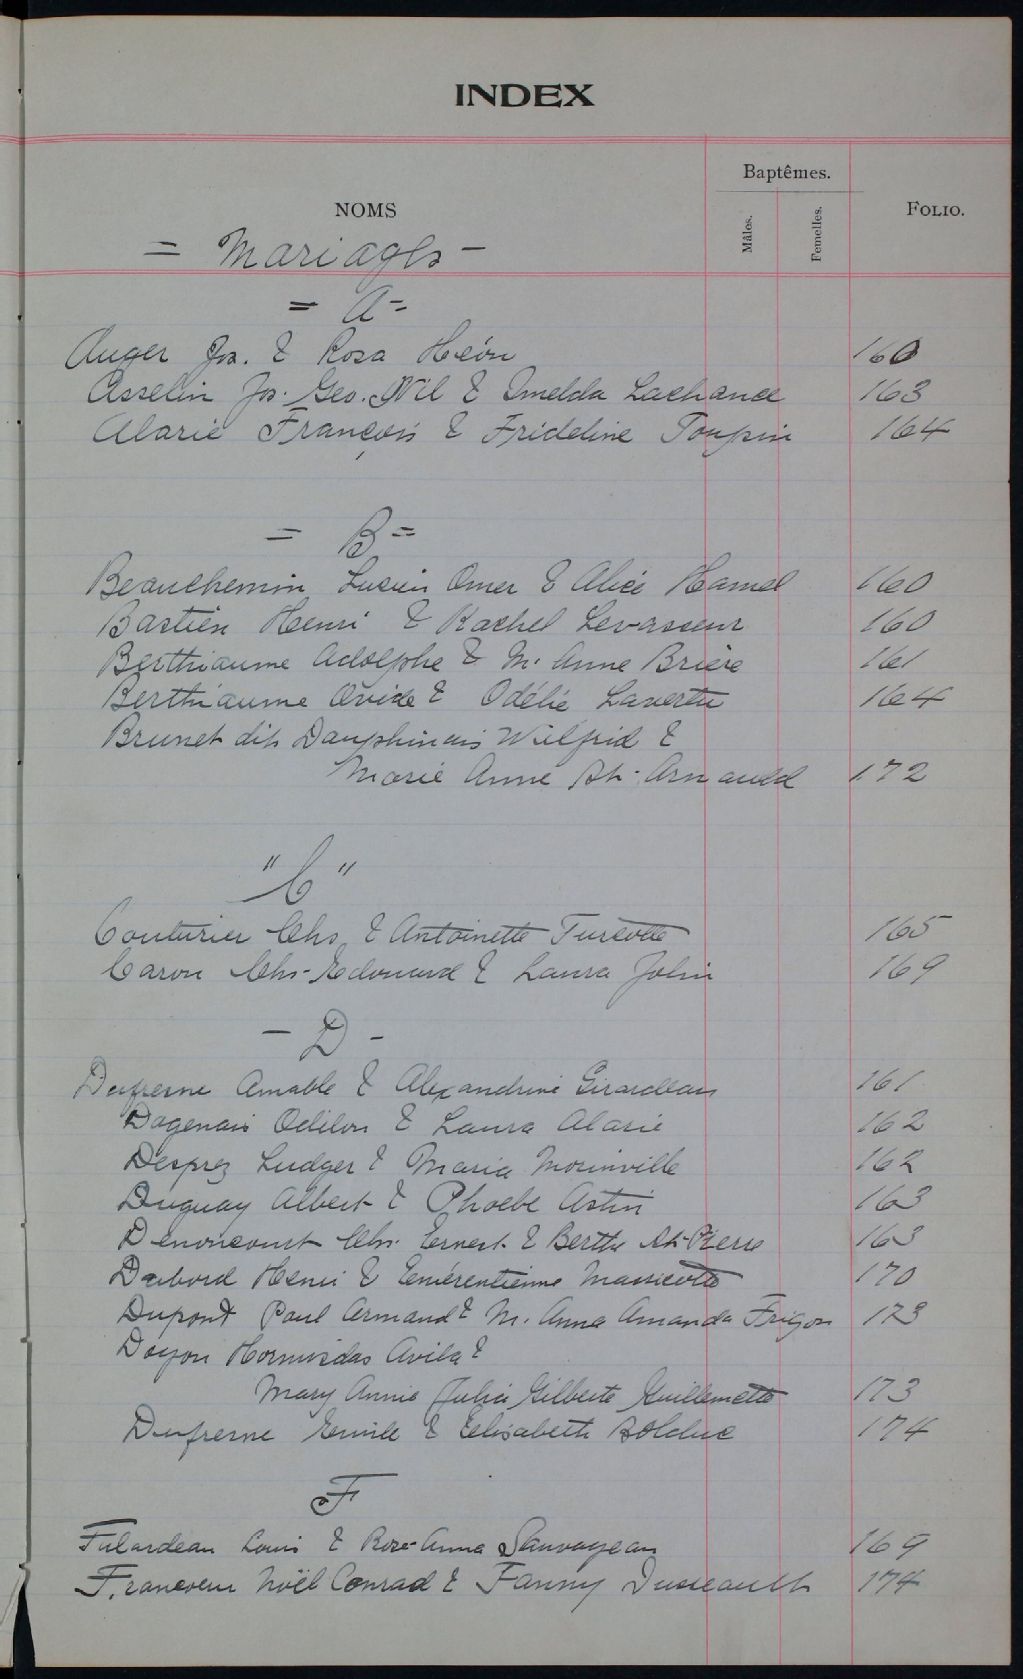 INDEX
Baptêmes.
NOMS
Mâles.
Femelles.
FOLIO.
= Mariages -
= A =
Auger Jos. & Rosa Héon 160
Asselin Jos. Geo. Wil & Imelda Lachance 163
Alarie François & Frideline Toupin 164
= B =
Beauchemin Lucien Omer & Alice Hamel 160
Bastien Henri & Rachel Levasseur 160
Berthiaume Adolphe & M. Anne Brière 161
Berthiaume Ovide & Odélie Lavertu 164
Brunet dit Dauphinais Wilfrid &
Marie Anne St-Arnauld 172
"C"
Couturier Chs & Antoinette Turcotte 165
Caron Chs-Edouard & Laura Jolin 169
- D -
Dufresne Amable & Alexandrine Girardeau 161
Dagenais Odilon & Laura Alarie 162
Desprez Ludger & Maria Morinville 162
Duguay Albert & Phoebe Astin 163
Denoncourt Chs. Ernest & Berthe St-Pierre 163
Dabord Henri & Emérentienne Massicotte 170
Dupont Paul Armand & M. Anna Amanda Frigon 173
Doyon Hormisdas Avila &
Mary Annie Julia Gilberte Guillemette 173
Dufresne Emile & Elisabeth Bolduc 174
F
Falardeau Louis & Rose-Anna Sauvageau 169
Francoeur Noël Conrad & Fanny Dusseault 174